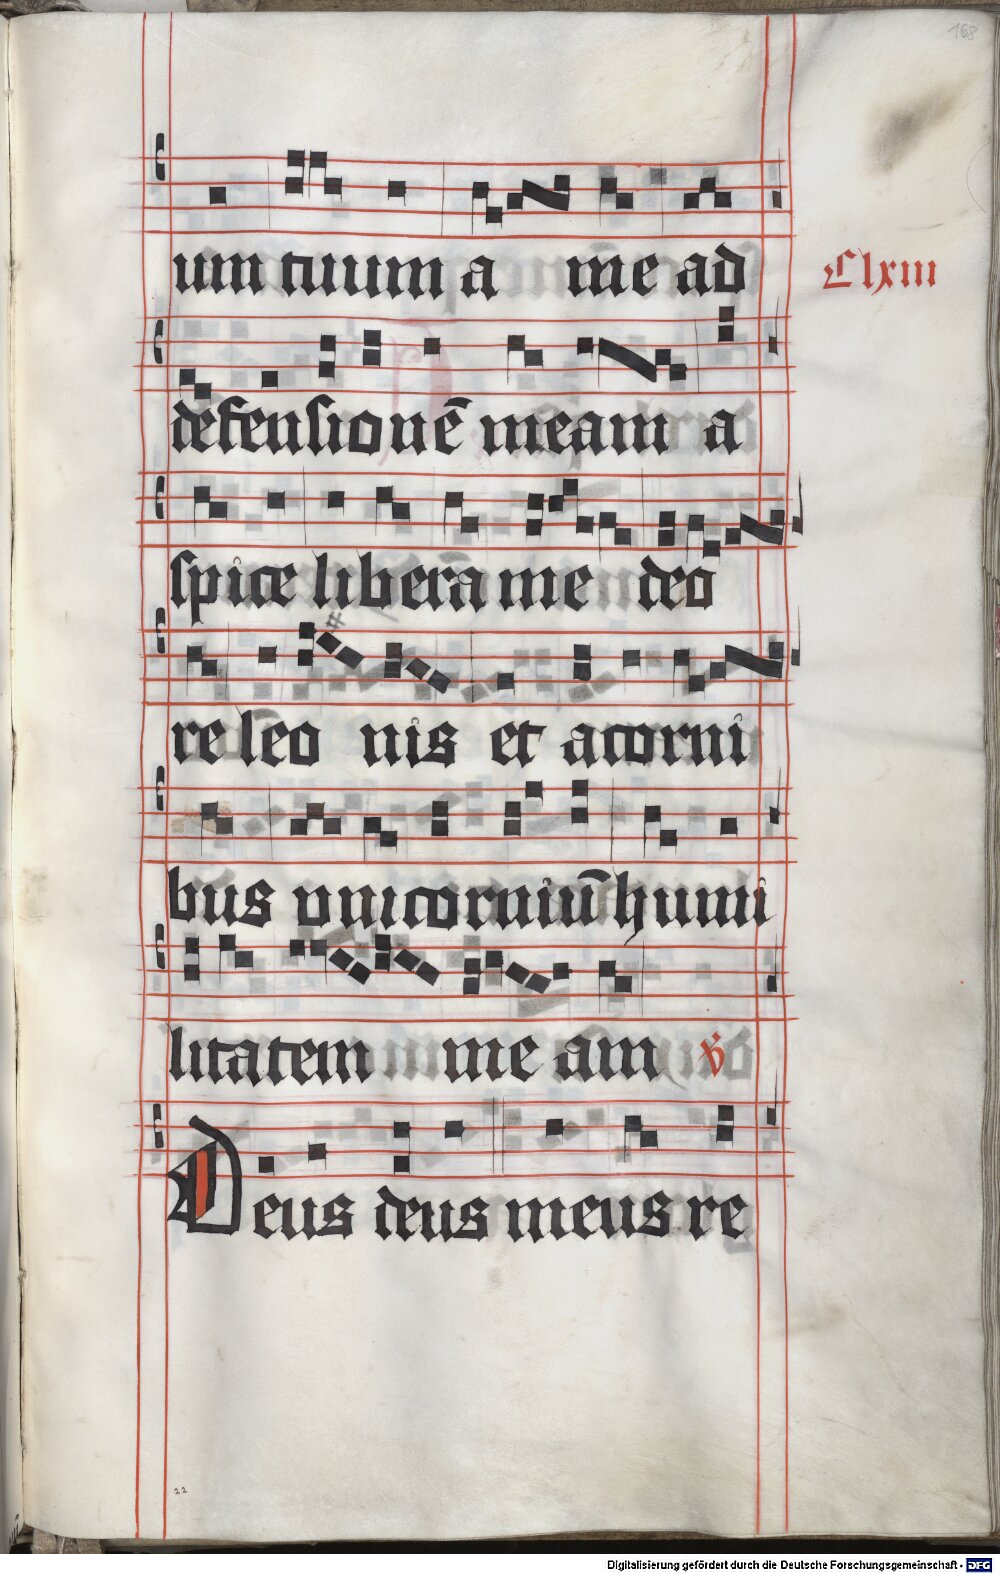 168
um tuum a me ad
Clxiii
defensionē meam a
spice libera me deo
re leo nis et a corni
bus vnicorniū humi
litatem me am ℣
Deus deus meus re
22
Digitalisierung gefördert durch die Deutsche Forschungsgemeinschaft - DFG